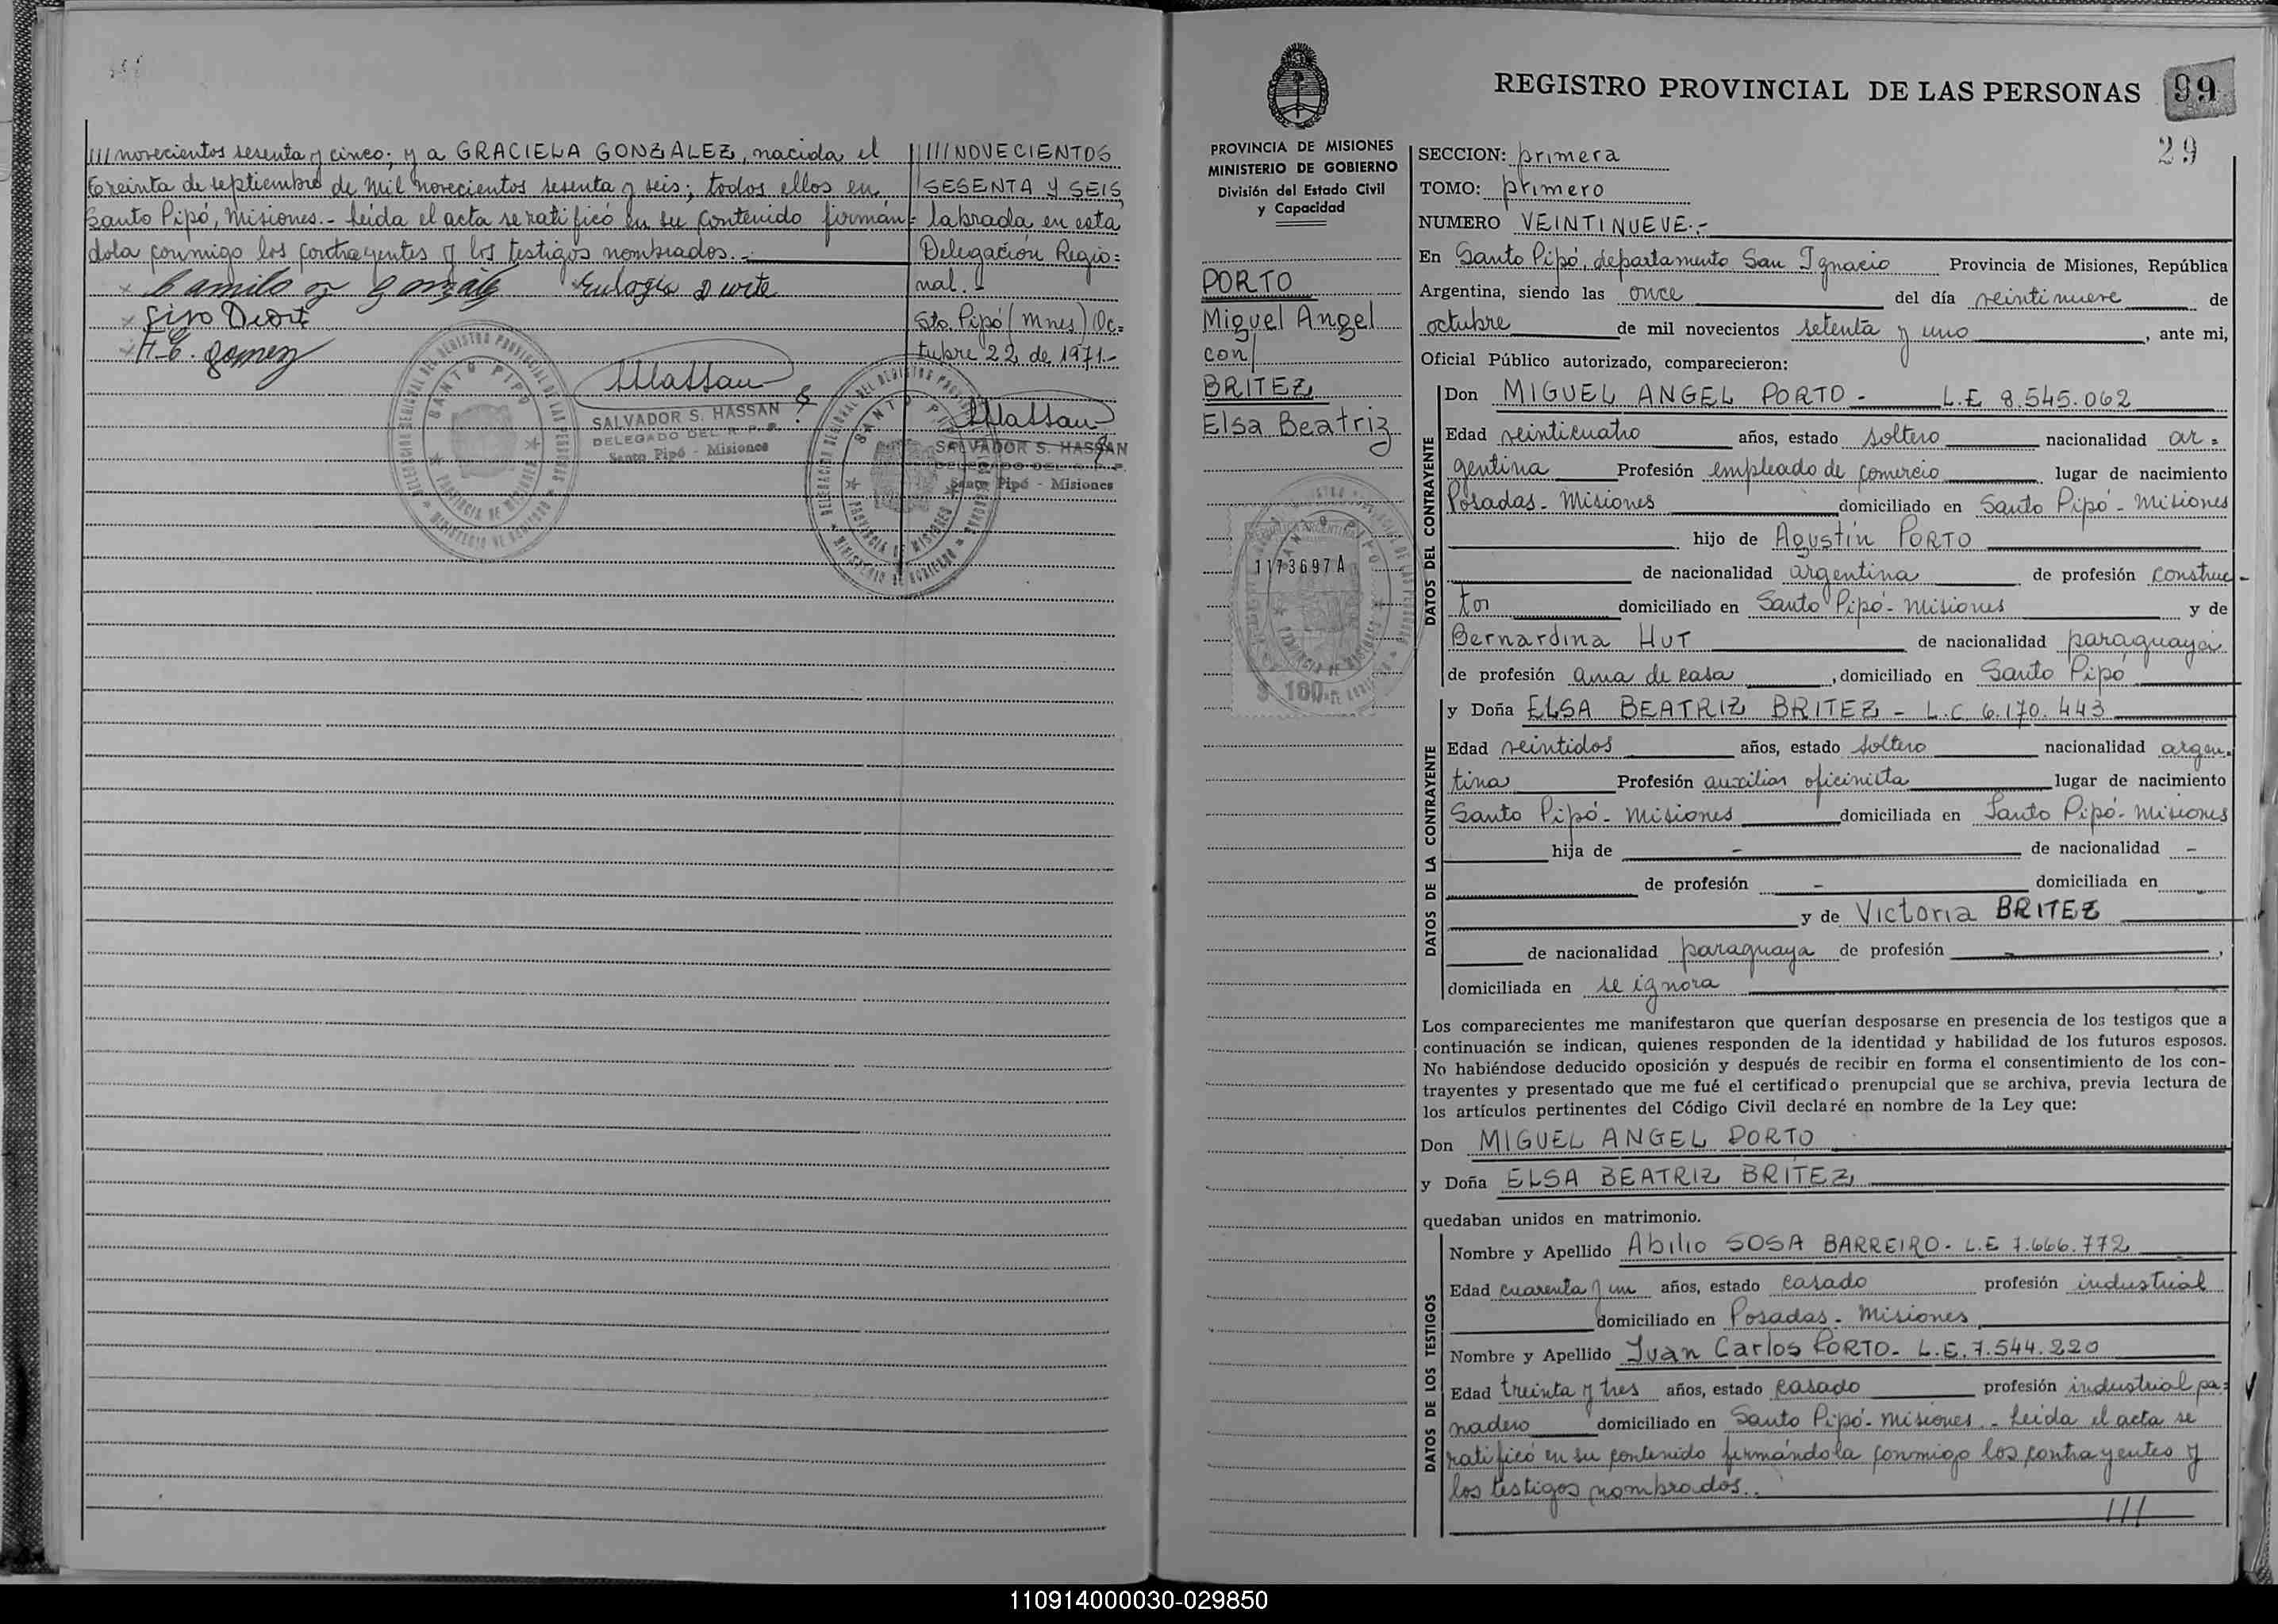 ///novecientos sesenta y cinco; y a GRACIELA GONZALEZ, nacida el
treinta de septiembre de mil novecientos sesenta y seis; todos ellos en
Santo Pipó, Misiones.- Leída el acta se ratificó en su contenido firmán=
dola conmigo los contrayentes y los testigos nombrados.-
Eulogia Duarte
H. E. Gomez
///NOVECIENTOS
SESENTA Y SEIS,
labrada en esta
Delegación Regio=
nal.-
Sto. Pipó (Mnes) Oc=
tubre 22 de 1971.-
SALVADOR S. HASSAN
DELEGADO DEL R. P. P.
Santo Pipó - Misiones
SALVADOR S. HASSAN
DELEGADO DEL R. P. P.
Santo Pipó - Misiones
SANTO PIPO
PROVINCIA DE MISIONES
SANTO PIPO
PROVINCIA DE MISIONES
REGISTRO PROVINCIAL DE LAS PERSONAS
99
29
PROVINCIA DE MISIONES
MINISTERIO DE GOBIERNO
División del Estado Civil
y Capacidad
PORTO
Miguel Angel
con
BRITEZ
Elsa Beatriz
1173697A
$ 100
SECCION: primera
TOMO: primero
NUMERO VEINTINUEVE.-
En Santo Pipó, departamento San Ignacio Provincia de Misiones, República
Argentina, siendo las once del día veintinueve de
octubre de mil novecientos setenta y uno, ante mi,
Oficial Público autorizado, comparecieron:
DATOS DEL CONTRAYENTE
Don MIGUEL ANGEL PORTO - L.E 8.545.062
Edad veinticuatro años, estado soltero nacionalidad ar=
gentina Profesión empleado de comercio lugar de nacimiento
Posadas - Misiones domiciliado en Santo Pipó - Misiones
hijo de Agustín PORTO
de nacionalidad argentina de profesión construc-
tor domiciliado en Santo Pipó - Misiones y de
Bernardina HUT de nacionalidad paraguaya
de profesión ama de casa, domiciliado en Santo Pipó
DATOS DE LA CONTRAYENTE
y Doña ELSA BEATRIZ BRITEZ - L.C 6.170.443
Edad veintidos años, estado soltero nacionalidad argen-
tina Profesión auxiliar oficinista lugar de nacimiento
Santo Pipó - Misiones domiciliada en Santo Pipó - Misiones
hija de - de nacionalidad -
de profesión - domiciliada en -
y de Victoria BRITEZ
de nacionalidad paraguaya de profesión -,
domiciliada en se ignora
Los comparecientes me manifestaron que querían desposarse en presencia de los testigos que a
continuación se indican, quienes responden de la identidad y habilidad de los futuros esposos.
No habiéndose deducido oposición y después de recibir en forma el consentimiento de los con-
trayentes y presentado que me fué el certificado prenupcial que se archiva, previa lectura de
los artículos pertinentes del Código Civil declaré en nombre de la Ley que:
Don MIGUEL ANGEL PORTO
y Doña ELSA BEATRIZ BRITEZ
quedaban unidos en matrimonio.
DATOS DE LOS TESTIGOS
Nombre y Apellido Abilio SOSA BARREIRO - L.E 7.666.772
Edad cuarenta y un años, estado casado profesión industrial
domiciliado en Posadas - Misiones
Nombre y Apellido Juan Carlos PORTO - L.E. 7.544.220
Edad treinta y tres años, estado casado profesión industrial pa=
nadero domiciliado en Santo Pipó - Misiones - Leída el acta se
ratificó en su contenido firmándola conmigo los contrayentes y
los testigos nombrados.-
///
110914000030-029850